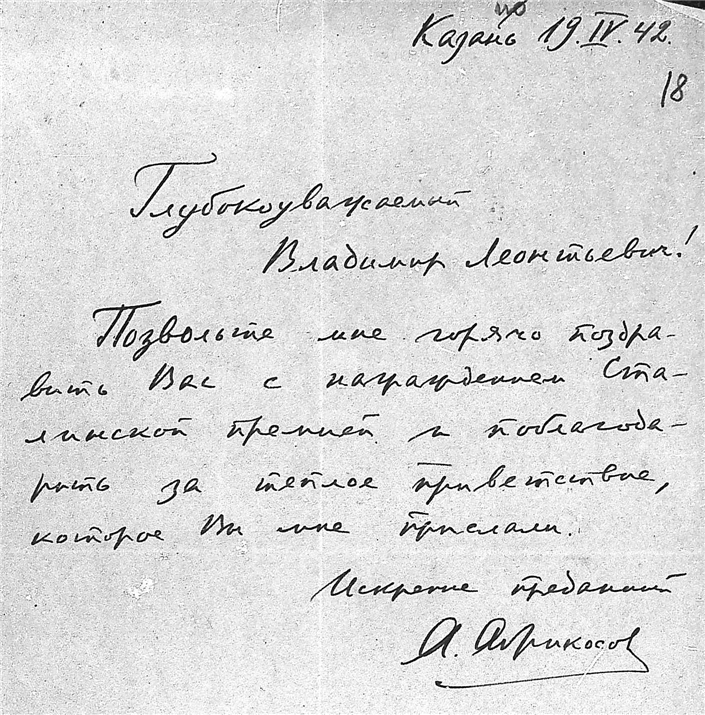 Казань 19.IV.42.
18
Глубокоуважаемый
Владимир Леонтьевич!
Позвольте мне горячо поздра-
вить Вас с награждением Ста-
линской премией и поблагода-
рить за теплое приветствие,
которое Вы мне прислали.
Искренне преданный
А. Абрикосов